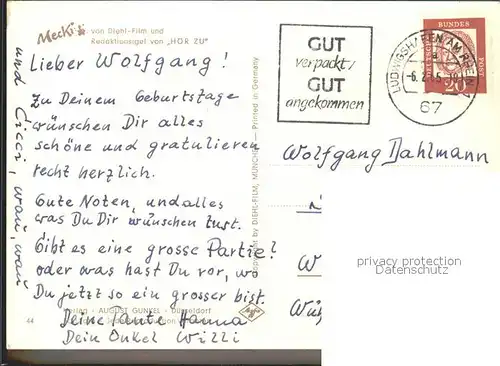 Mecki von Diehl-Film und
Redaktionsigel von "HÖR ZU"
Lieber Wolfgang!
Zu Deinem Geburtstage
wünschen Dir alles
schöne und gratulieren
recht herzlich.
Gute Noten, und alles
was Du Dir wünschen tust.
Gibt es eine grosse Partie?
oder was hast Du vor, wo
Du jetzt so ein grosser bist.
Deine Tante Hanna
Dein Onkel Willi
und Cicci, wau, wau
AUGUST GUNKEL · Düsseldorf
44
by DIEHL-FILM, MÜNCHEN — Printed in Germany
GUT
verpackt/
GUT
angekommen
LUDWIGSHAFEN AM RHEIN
67
DEUTSCHE BUNDESPOST
20
Wolfgang Dahlmann
W
privacy protection
Datenschutz